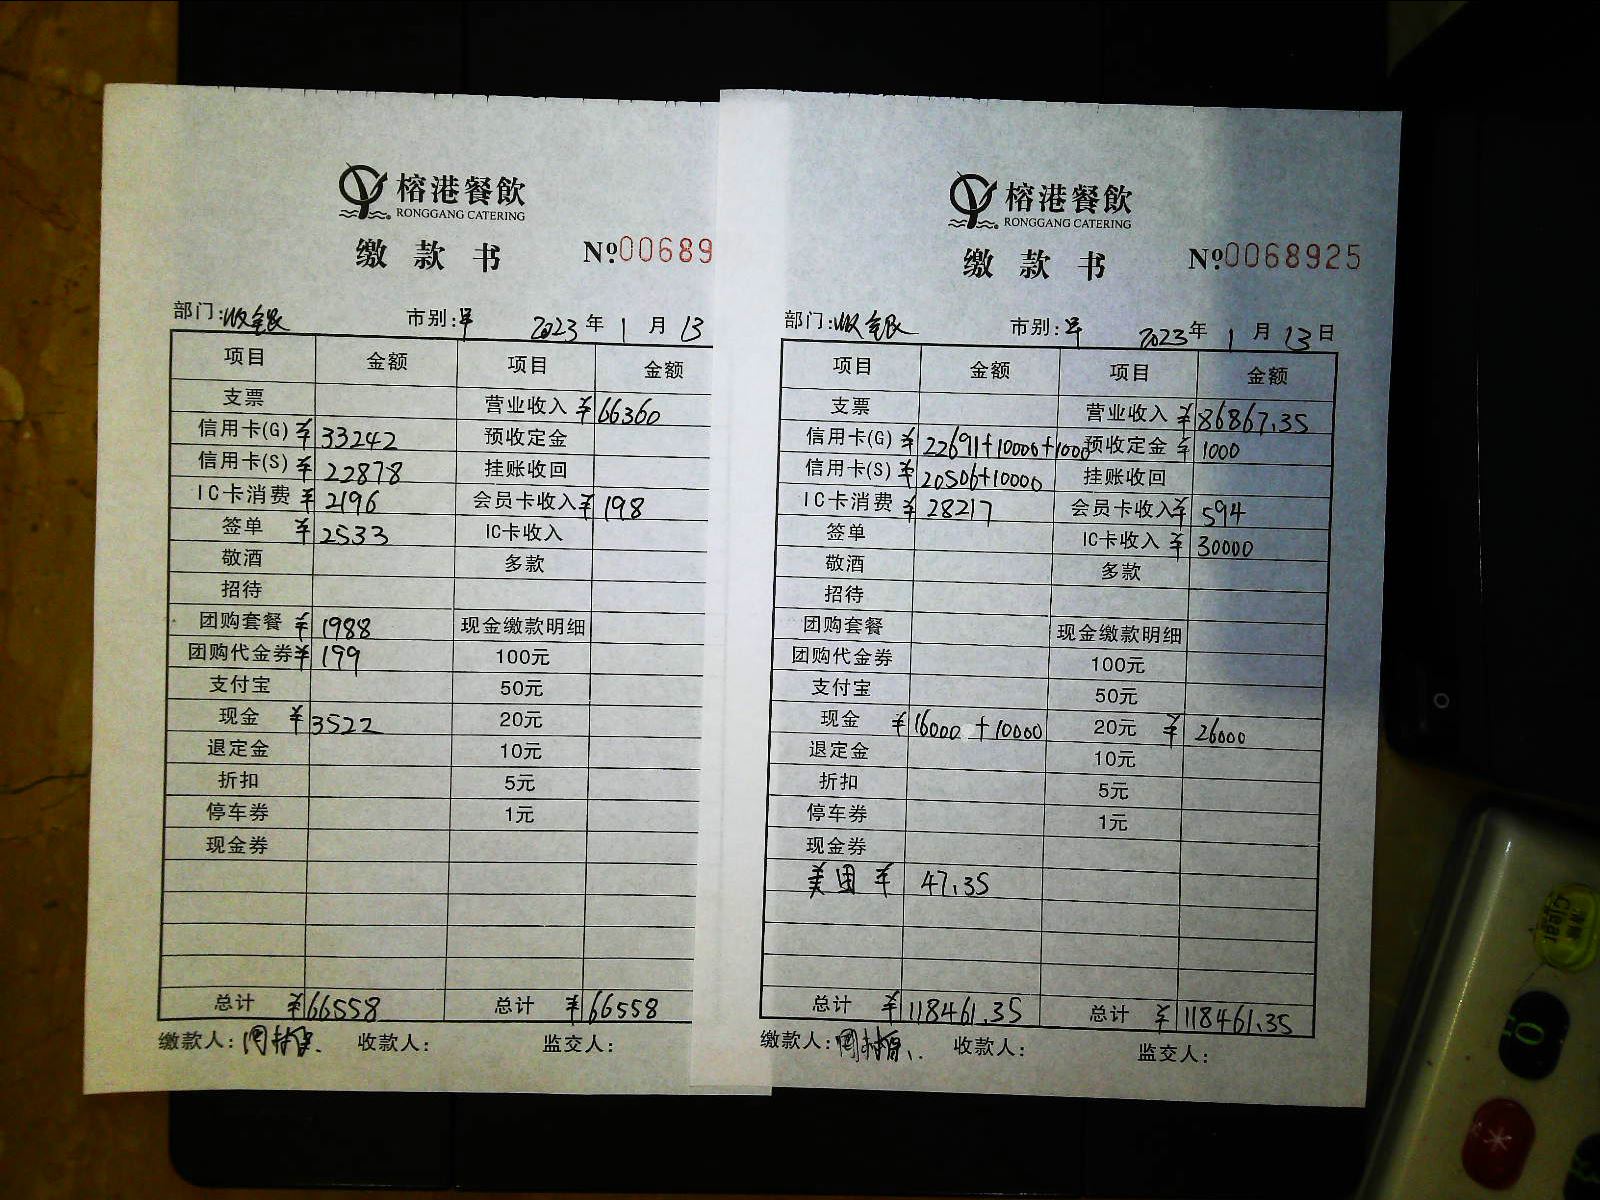 榕港餐飲
RONGGANG CATERING
缴款书 Nº 00689
部门:收银 市别:早 2023年1月13
项目 金额 项目 金额
支票 营业收入 ¥66360
信用卡(G) ¥33242 预收定金
信用卡(S) ¥22878 挂账收回
IC卡消费 ¥2196 会员卡收入 ¥198
签单 ¥2533 IC卡收入
敬酒 多款
招待
团购套餐 ¥1988 现金缴款明细
团购代金券 ¥199 100元
支付宝 50元
现金 ¥3522 20元
退定金 10元
折扣 5元
停车券 1元
现金券
总计 ¥66558 总计 ¥66558
缴款人: 收款人: 监交人:
榕港餐飲
RONGGANG CATERING
缴款书 Nº 0068925
部门:收银 市别:早 2023年1月13日
项目 金额 项目 金额
支票 营业收入 ¥86867.35
信用卡(G) ¥22691+10000+1000 预收定金 ¥1000
信用卡(S) ¥20506+10000 挂账收回
IC卡消费 ¥28217 会员卡收入 ¥594
签单 IC卡收入 ¥30000
敬酒 多款
招待
团购套餐 现金缴款明细
团购代金券 100元
支付宝 50元
现金 ¥16000+10000 20元 ¥26000
退定金 10元
折扣 5元
停车券 1元
现金券
美团 ¥47.35
总计 ¥118461.35 总计 ¥118461.35
缴款人: 收款人: 监交人:
清除
Clear
0
*